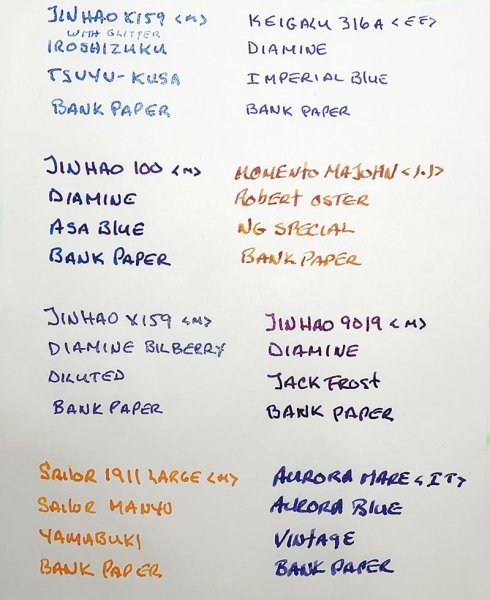 JINHAO X159 <M>
WITH GLITTER
IROSHIZUKU
TSUYU-KUSA
BANK PAPER
KEIGALU 316A <EF>
DIAMINE
IMPERIAL BLUE
BANK PAPER
JINHAO 100 <M>
DIAMINE
ASA BLUE
BANK PAPER
MOMENTO MAJOHN <1.1>
ROBERT OSTER
NG SPECIAL
BANK PAPER
JINHAO X159 <M>
DIAMINE BILBERRY
DILUTED
BANK PAPER
JINHAO 9019 <M>
DIAMINE
JACK FROST
BANK PAPER
SAILOR 1911 LARGE <M>
SAILOR MANYO
YAMABUKI
BANK PAPER
AURORA MARE <IT>
AURORA BLUE
VINTAGE
BANK PAPER